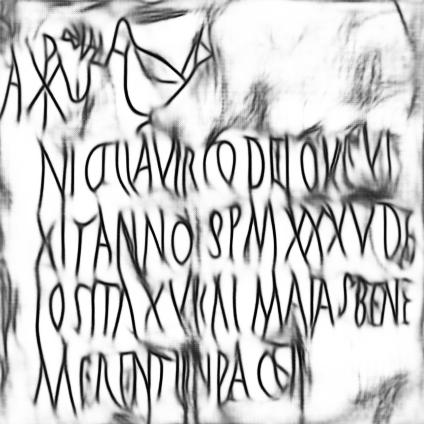 NICELLA VIRGO DEI QVE VI
XIT ANNOS PM XXXV DE
POSITA XV KAL MAIAS BENE
MERENTI IN PACE